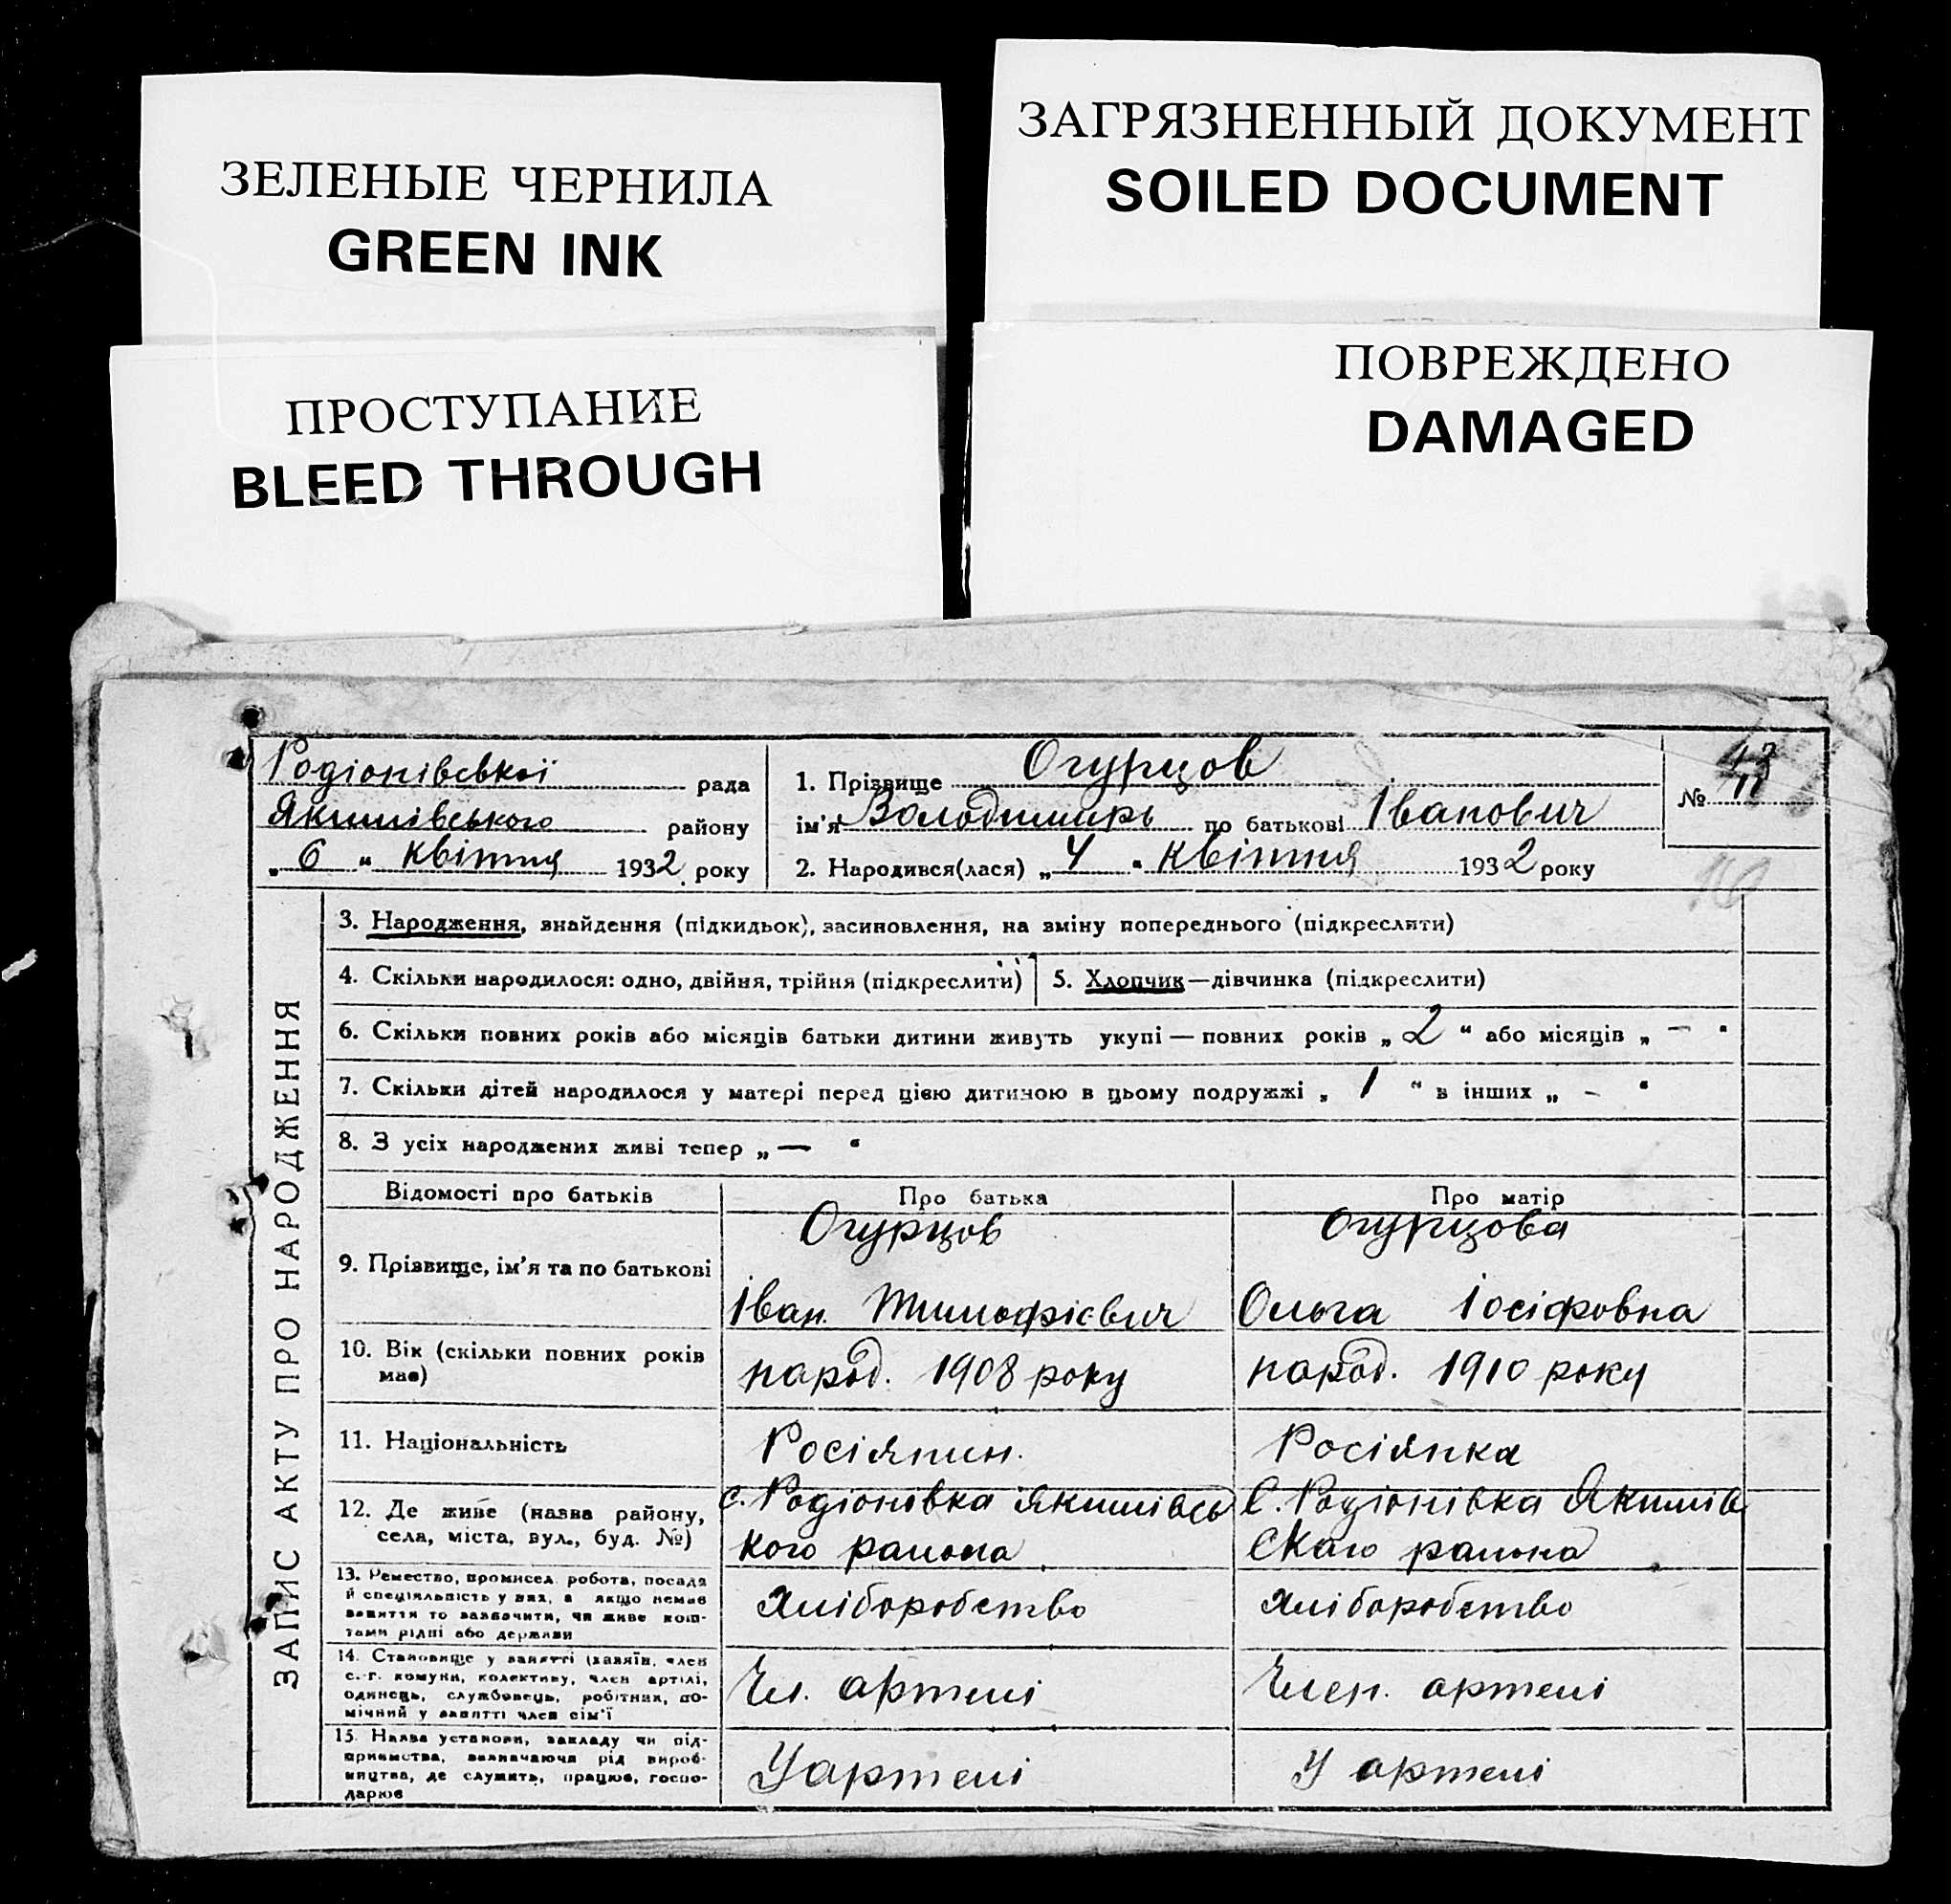 ЗЕЛЕНЫЕ ЧЕРНИЛА
GREEN INK
ЗАГРЯЗНЕННЫЙ ДОКУМЕНТ
SOILED DOCUMENT
ПРОСТУПАНИЕ
BLEED THROUGH
ПОВРЕЖДЕНО
DAMAGED
Родіонівської рада
Якимівського району
„ 6 “ квітня 1932 року
1. Прізвище Огурцов
ім'я Володимирь по батькові Іванович
2. Народився(лася) „ 4 “ квітня 1932 року
№
ЗАПИС АКТУ ПРО НАРОДЖЕННЯ
3. Народження, знайдення (підкидьок), засиновлення, на зміну попереднього (підкреслити)
4. Скільки народилося: одно, двійня, трійня (підкреслити)
5. Хлопчик—дівчинка (підкреслити)
6. Скільки повних років або місяців батьки дитини живуть укупі — повних років „ 2 “ або місяців „ — “
7. Скільки дітей народилося у матері перед цією дитиною в цьому подружжі „ 1 “ в інших „ - “
8. З усіх народжених живі тепер „ — “
Відомості про батьків
Про батька
Про матір
9. Прізвище, ім'я та по батькові
Огурцов
Іван Тимофієвич
Огурцова
Ольга Іосіфовна
10. Вік (скільки повних років
має)
народ. 1908 року
народ. 1910 року
11. Національність
Росіянин.
Росіянка
12. Де живе (назва району,
села, міста, вул., буд. №)
с. Родіонівка Якимівсь
кого района
С. Родіонівка Якимів
Скаго района
13. Ремество, промисел, робота, посада
й спеціяльність у них, а якщо немає
заняття то зазначити, чи живе кош-
тами рідні або держави
Хліборобство
Хліборобство
14. Становище у занятті (хазяїн, член
с.-г. комуни, колективу, член артілі,
одинець, службовець, робітник, по-
мічний у занятті член сім'ї
Чл. артелі
Член. артелі
15. Назва установи, закладу чи під-
приємства, зазначаючи рід вироб-
ництва, де служить, працює, госпо-
дарює
У артелі
У артелі